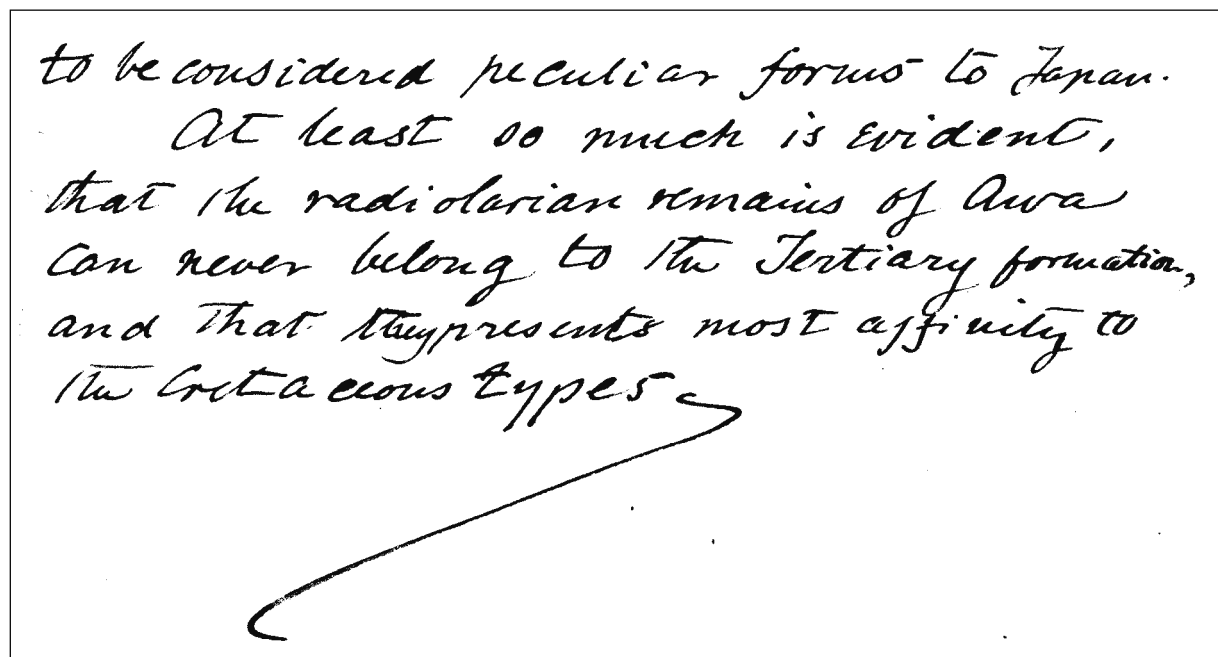 to be considered peculiar forms to Japan.
At least so much is evident,
that the radiolarian remains of Awa
can never belong to the Tertiary formation,
and that they presents most affinity to
the Cretaceous types